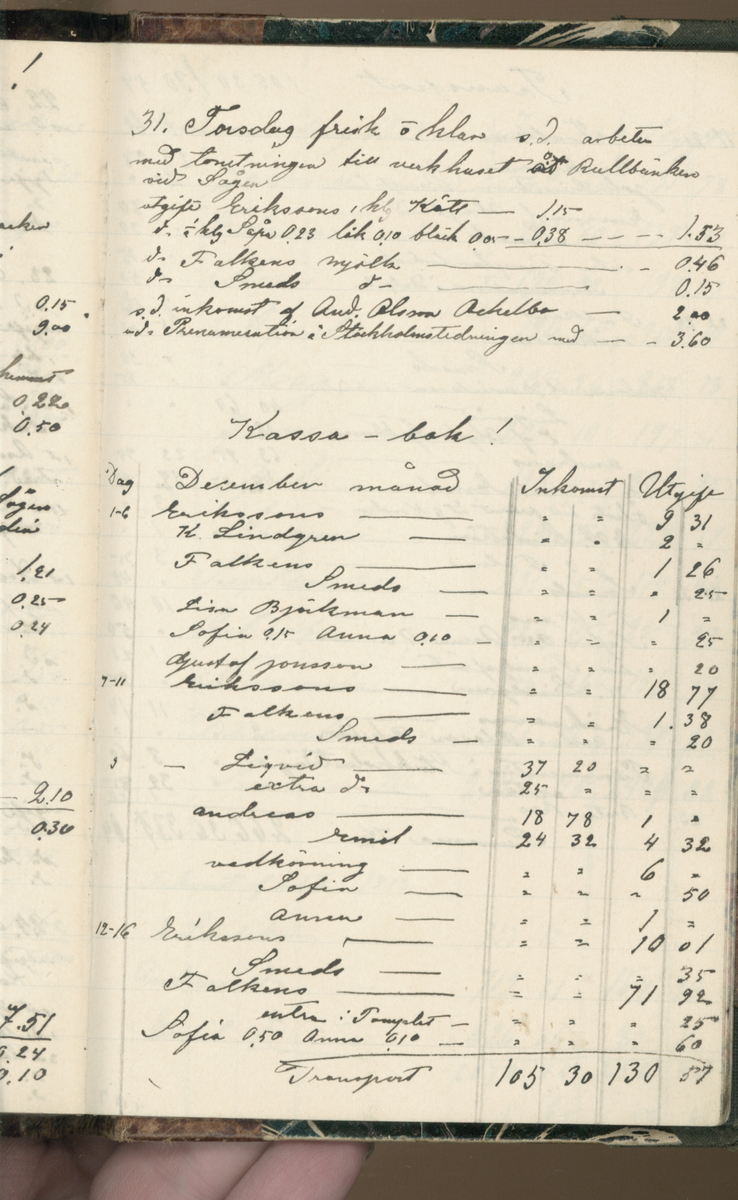 !
0.15
9.00
0.22
0.50
1.21
0.25
0.24
2.10
0.30
7.51
0.10
31. Torsdag frisk o klar s.d. arbeten
med tomtningen till verkhuset åt Rullbänken
vid Sågen
utgift Erikssons 1 klg Kött — 1.15
d- ½ klg Såpa 0.23 lök 0.10 bläck 0.05 — 0.38 — — 1.53
d- Falkens mjölk — 0.46
d- Smeds d- — 0.15
s.d. inkomst af And. Olsson Ockelbo — 2.00
ud- Prenumeration å Stockholmstidningen med — 3.60
Kassa-bok!
Dag December månad Inkomst Utgift
1-6 Erikssons — " " 9 31
K. Lindgren — " " 2 "
Falkens — " " 1 26
Smeds " " " 25
Lisa Björkman — " " 1 "
Sofia 0.15 Anna 0.10 — " " " 25
Gustaf Jonsson — " " " 20
7-11 Erikssons — " " 18 77
Falkens — " " 1.38
Smeds — " " " 20
— Liqvid — 37 20 " "
extra d- 25 " " "
andreas — 18 78 1 "
Emil — 24 32 4 32
vedkörning — " " 6 "
Sofia — " " " 50
Anna — " " 1 "
12-16 Erikssons — " " 10 01
Smeds — " " " 35
Falkens — " " 71 92
extra i — " " " 25
Sofia 0.50 Anna 0.10 — " " " 60
Transport 105 30 130 57